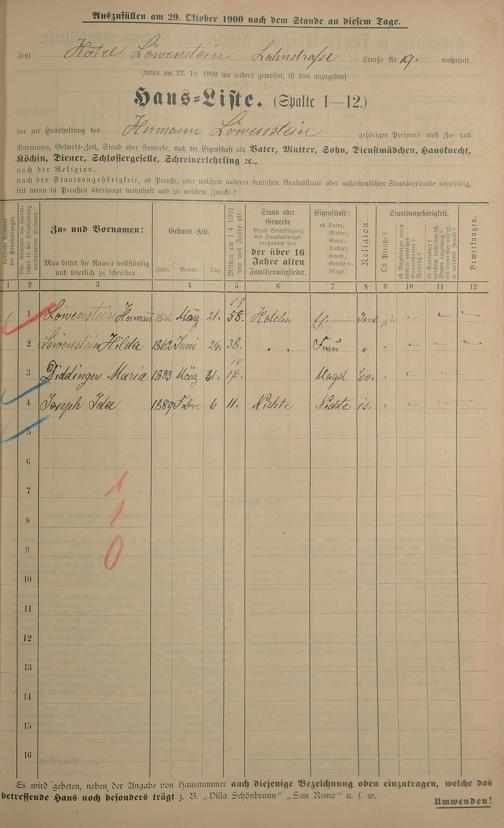 Auszufüllen am 29. Oktober 1900 nach dem Stande an diesem Tage.
Jetzt Hotel Löwenstein Lahnstraße Straße Nr. 19. wohnhaft.
(wenn am 27. 10. 1899 wo anders gewohnt, ist dies anzugeben)
Haus-Liste. (Spalte 1—12.)
der zur Haushaltung des Hermann Löwenstein gehörigen Personen nach Zu- und
Vornamen, Geburts-Zeit, Stand oder Gewerbe, nach der Eigenschaft als Vater, Mutter, Sohn, Dienstmädchen, Hausknecht,
Köchin, Diener, Schlossergeselle, Schreinerlehrling ꝛc.,
nach der Religion,
nach der Staatsangehörigkeit, ob Preuße, oder welchem anderen deutschen Bundesstaate oder außerdeutschen Staatsverbande angehörig,
seit wann in Preußen überhaupt wohnhaft und zu welchem Zwecke?
Zu- und Vornamen:
Man bittet die Namen vollständig und leserlich zu schreiben.
Geburts-Zeit.
Jahr. Monat. Tag.
Mithin am 1./4. 1901 wie viel Jahre alt.
Stand oder Gewerbe
der über 16 Jahre alten Familienmitglieder.
Eigenschaft:
ob Vater, Mutter, Sohn, Tochter, Knecht, Geselle, Magd.
Religion.
Staatsangehörigkeit.
Ob Preuße?
Bemerkungen.
1 2 3 4 5 6 7 8 9 10 11 12
1 Löwenstein Hermann 1842 März 21. 58.
2 Löwenstein Hilda 1862 Juni 24. 38. " " Frau "
3 Diddinger Maria 1883 März 31. 17. Magd Ev.
4 Joseph Ida 1889 Febr. 6 11. Nichte Nichte is.
5
6
7 1
8 1
9 0
10
11
12
13
14
15
16
Es wird gebeten, neben der Angabe von Hausnummer auch diejenige Bezeichnung oben einzutragen, welche das
betreffende Haus noch besonders trägt z. B. „Villa Schönbrunn" „San Remo" u. s. w.
Umwenden!